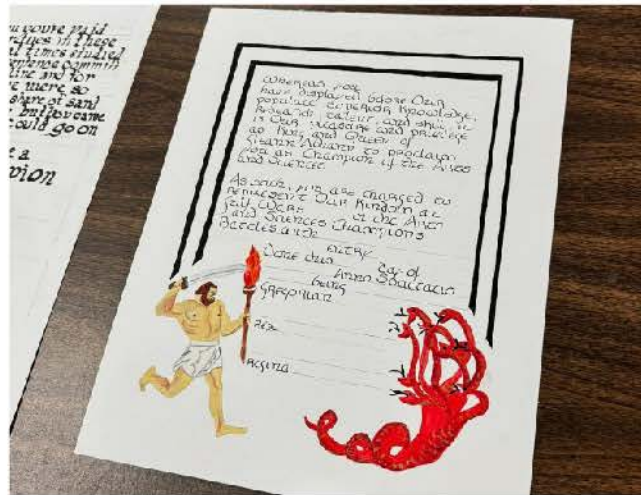 you are paid
in these
times studied
commit
line and for
were so
share of sand
but you came
could go on
e a
pion
Whereas you
have displayed before Our
populace superior knowledge,
research valour, and skill, it
is Our pleasure and privilege
as King and Queen of
to proclaim
you an Champion of the Arts
and Sciences.
As such, you are charged to
represent Our Kingdom at
Gulf Wars in the Arts
and Sciences Champions
Battles with
entry
Done this day of
Anno Societatis
being
Gregorian
Rex
Regina